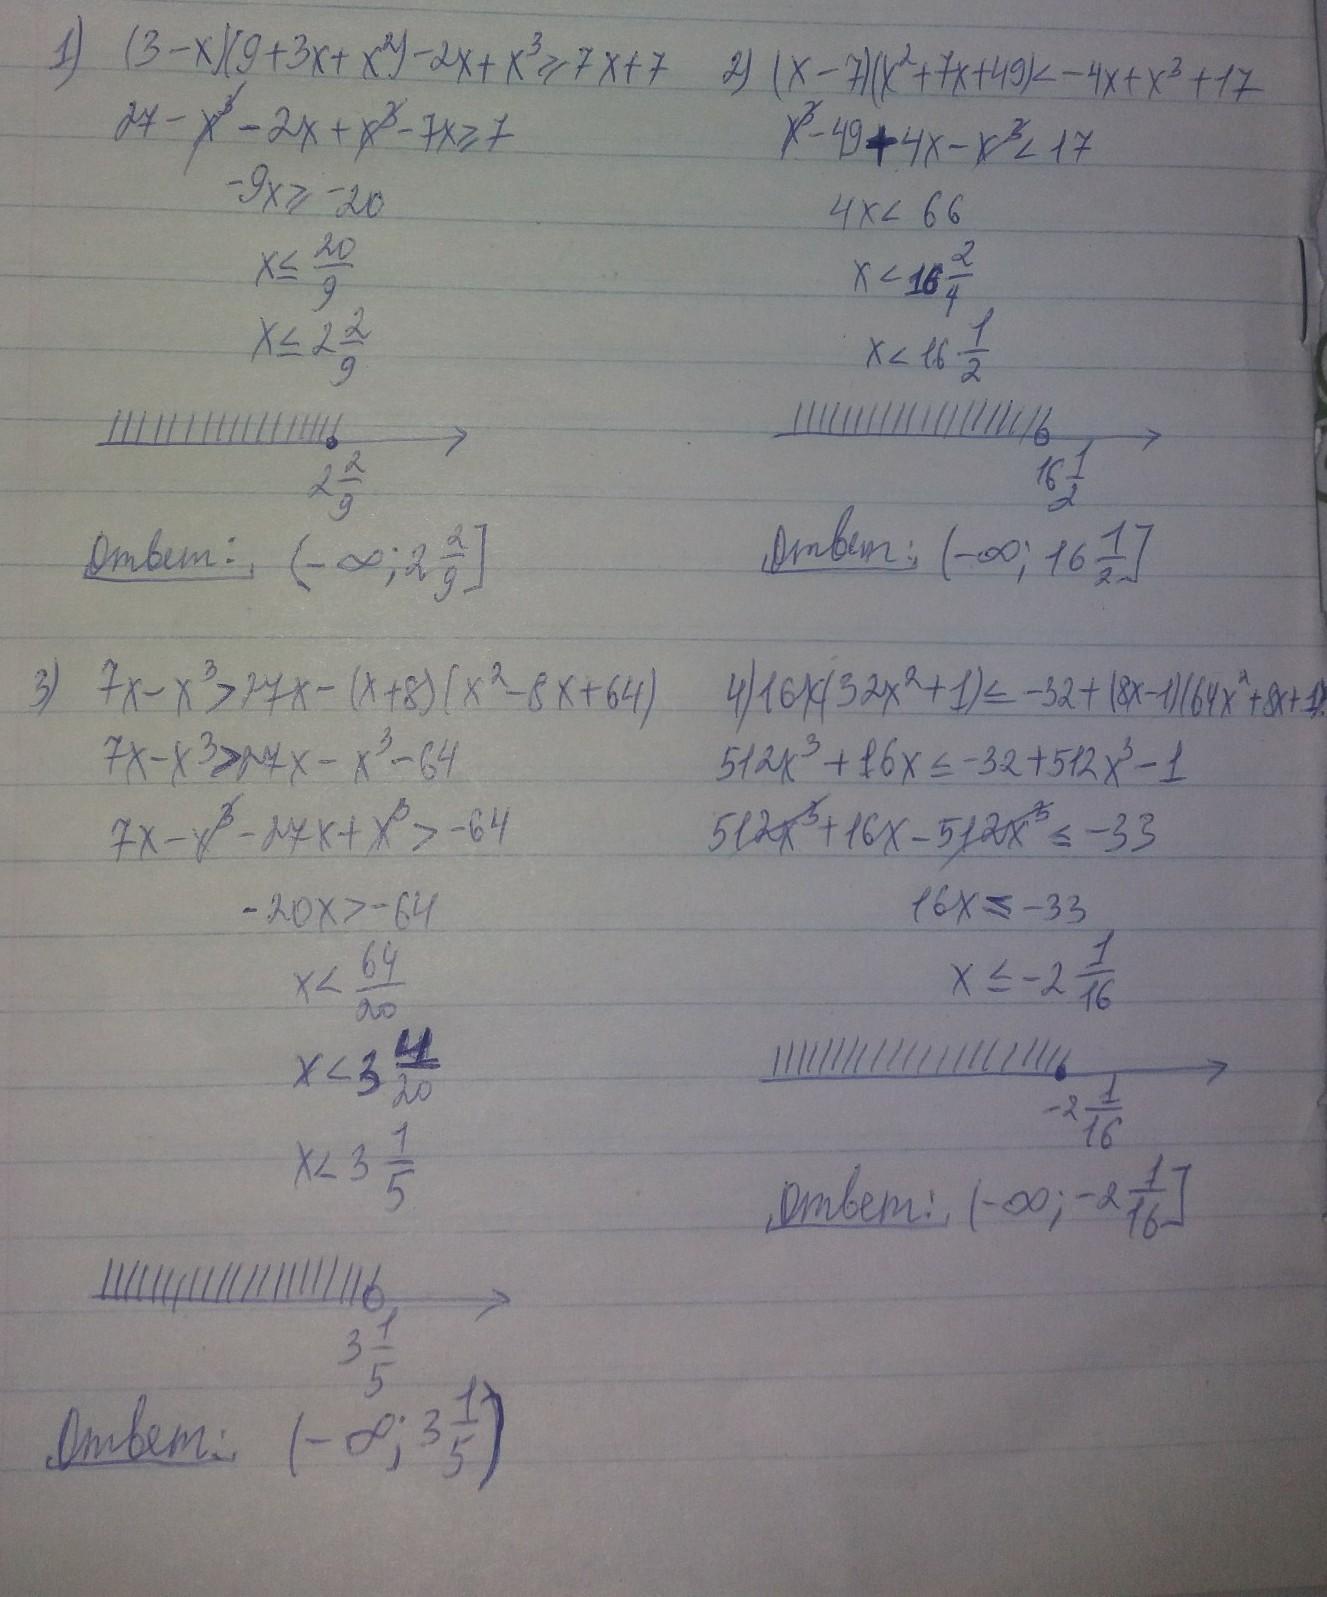 1) (3-x)(9+3x+x²)-2x+x³≥7x+7
27-x³-2x+x³-7x≥7
-9x≥-20
x≤20/9
x≤2 2/9
2 2/9
Ответ: (-∞; 2 2/9]
2) (x-7)(x²+7x+49)<-4x+x³+17
x³-49+4x-x³<17
4x<66
x<16 2/4
x<16 1/2
16 1/2
Ответ: (-∞; 16 1/2]
3) 7x-x³>27x-(x+8)(x²-8x+64)
7x-x³>27x-x³-64
7x-x³-27x+x³>-64
-20x>-64
x<64/20
x<3 4/20
x<3 1/5
3 1/5
Ответ: (-∞; 3 1/5)
4) 16x(32x²+1)≤-32+(8x-1)(64x²+8x+1)
512x³+16x≤-32+512x³-1
512x³+16x-512x³≤-33
16x≤-33
x≤-2 1/16
-2 1/16
Ответ: (-∞; -2 1/16]